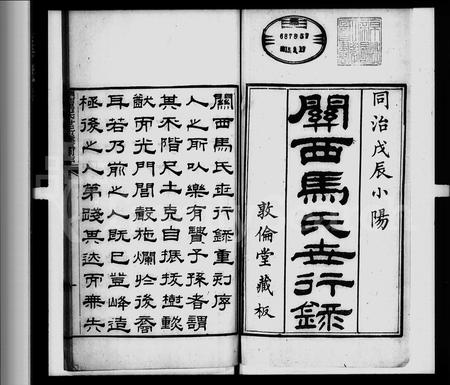 同治戊辰小陽
關西馬氏世行錄
敦倫堂藏板
關西馬氏世行錄重刻序
人之所以樂有賢子孫者謂
其不階尺土克自振拔樹勳
猷而光門閭縠施爛於後裔
耳若乃前之人既已登峰造
極後之人第踐其迹而無失